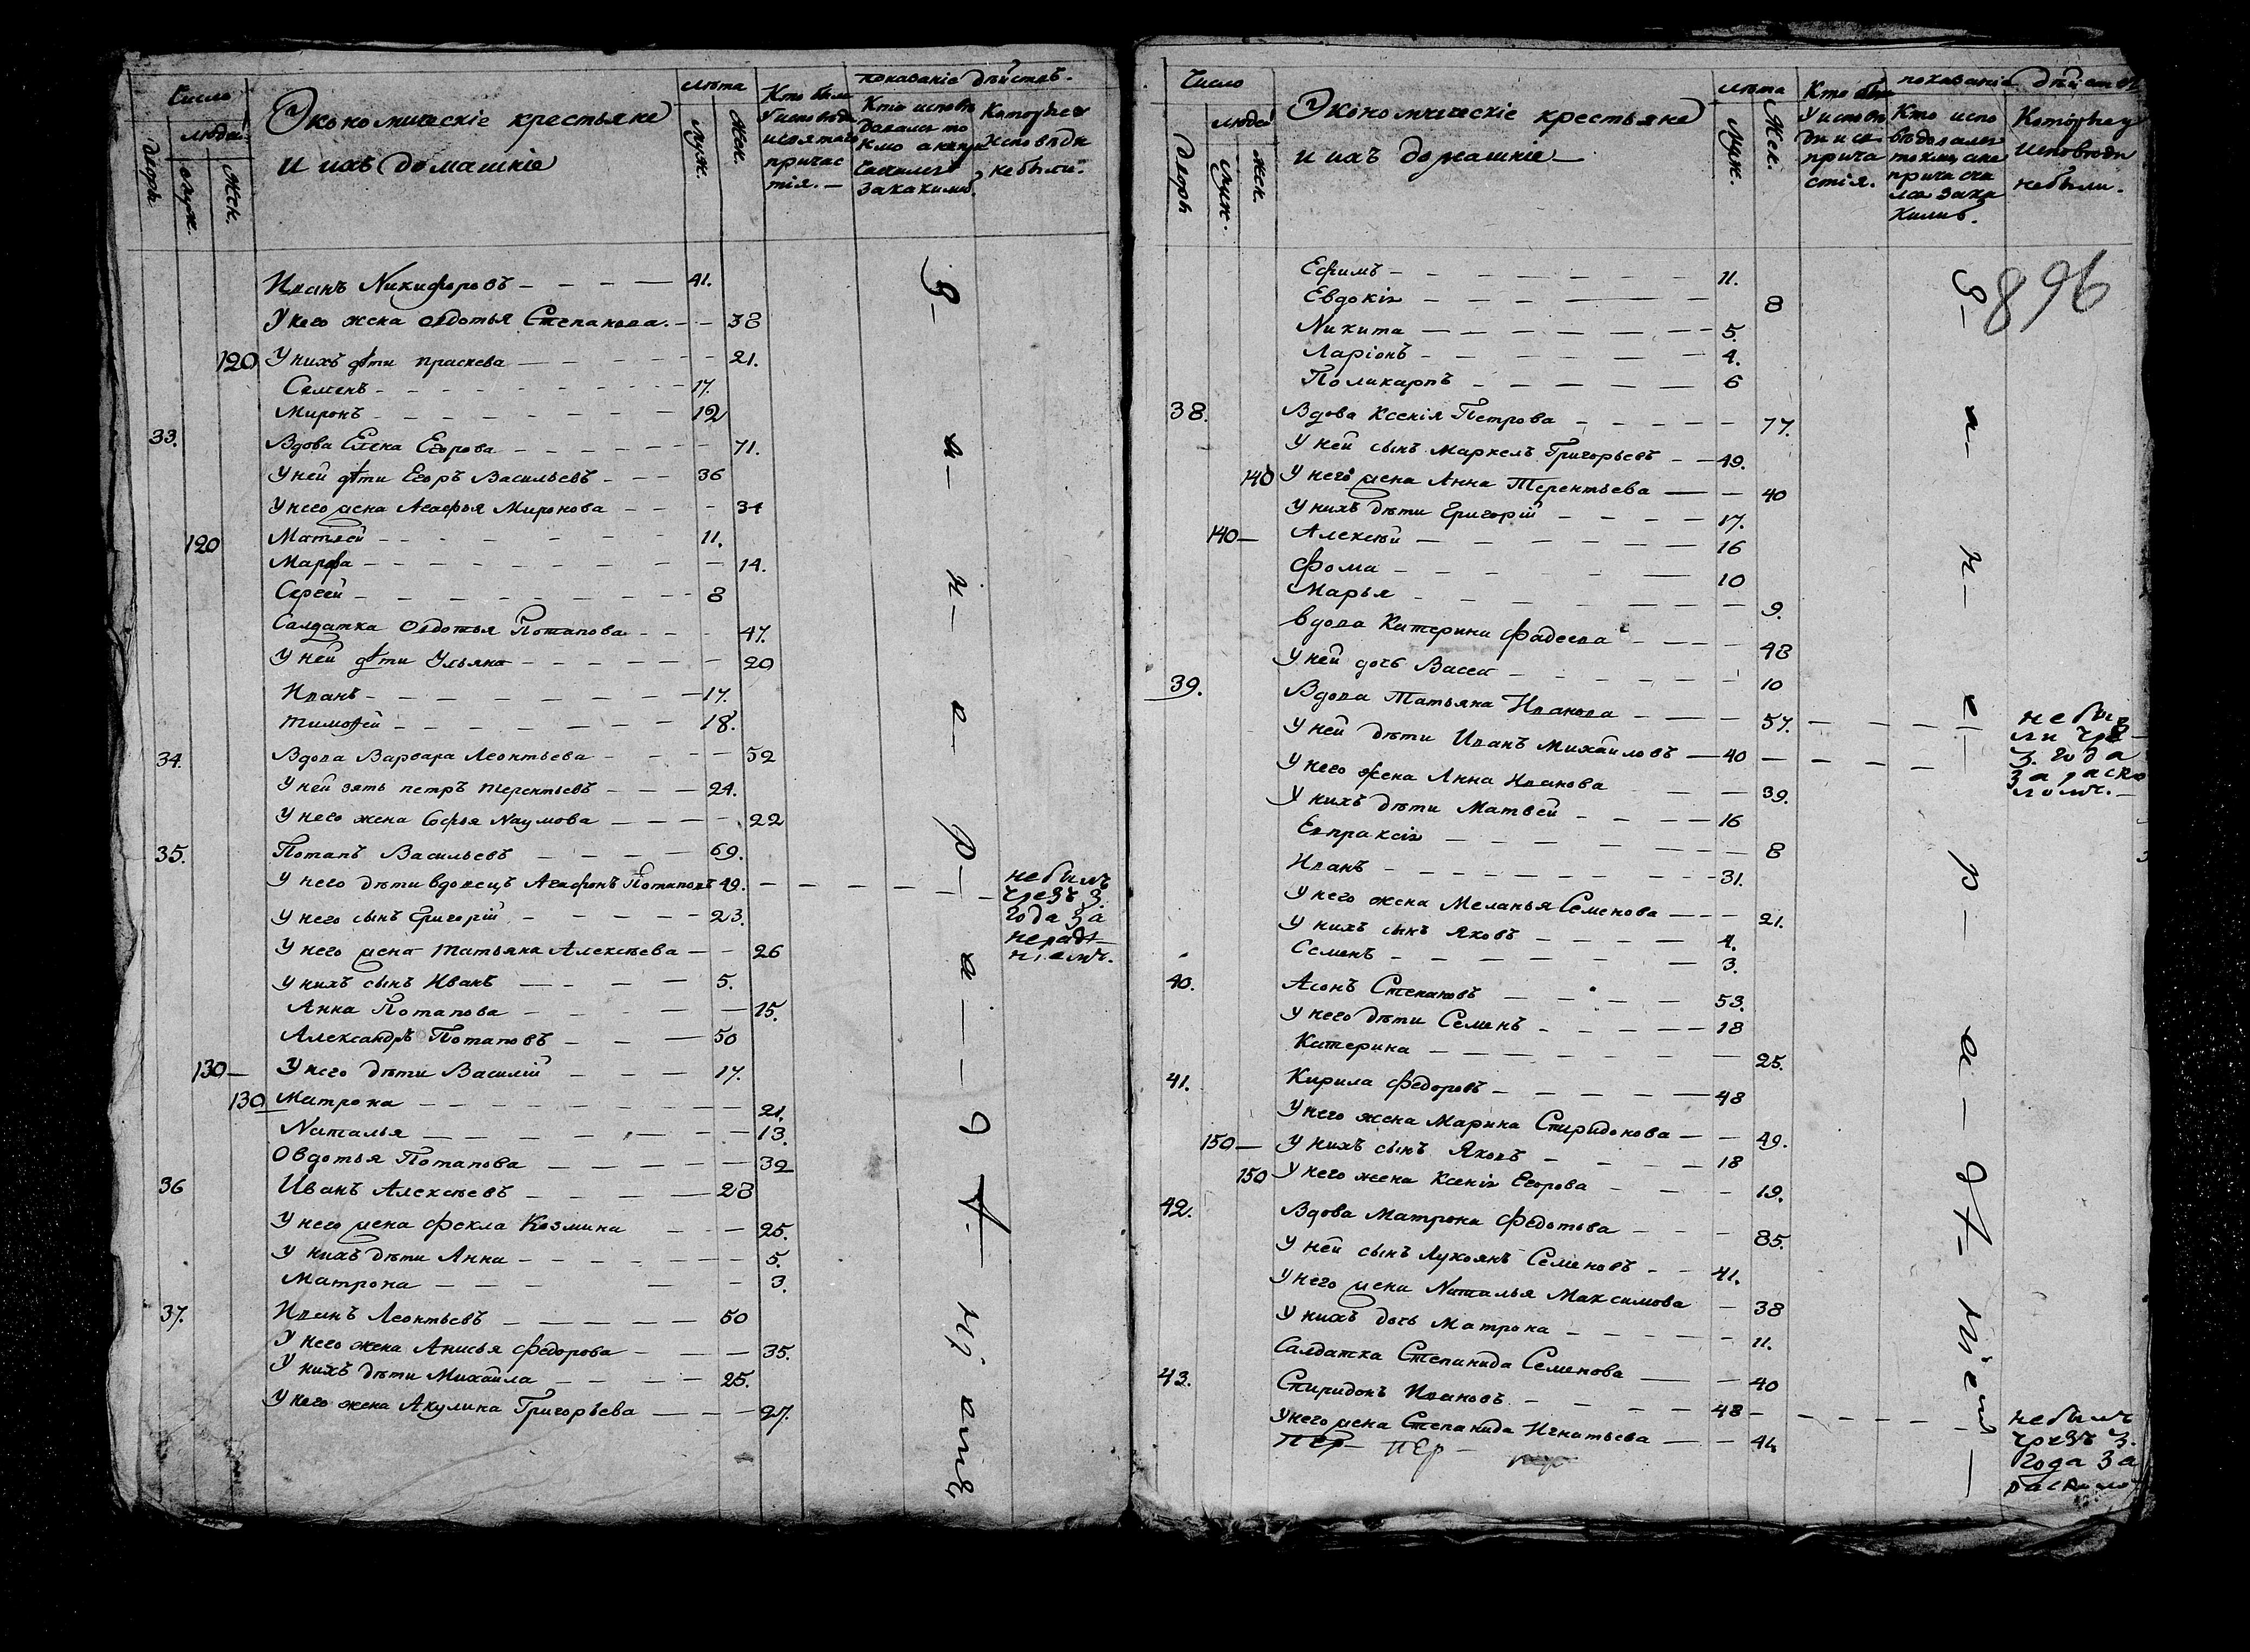 Число
людей
дворъ
муж.
жен.
Экономическіе крестьяне
и ихъ домашніе
лѣта
муж.
жен.
Кто были
У исповѣди
и святаго
причас
тія. —
показаніе дѣйствъ.
Кто исповѣ
довался то
кмо а не при
чащался
за какимъ.
Которые у
исповѣди
не были.
Иванъ Никифоровъ 41.
У него жена Овдотья Степанова. 38
120 У нихъ дѣти Прасковья 21.
Семенъ 17.
Миронъ 12
33. Вдова Елена Егорова 71.
У ней дѣти Егоръ Васильевъ 36
У него жена Агафья Миронова 34
120 Матвей 11.
Марфа 14.
Сергей 8
Салдатка Овдотья Потапова 47.
У ней дѣти Ульяна 20
Иванъ 17.
Тимофей 18.
34. Вдова Варвара Леонтьева 52
У ней зять петръ терентьевъ 24.
У него жена Софья Наумова 22
35. Потапъ Васильевъ 69.
У него дѣти вдовецъ Агафонъ Потаповъ 49. не былъ
чрезъ 3.
года за
нерадѣ
ніемъ.
У него сынъ Григорій 23.
У него жена татьяна Алексѣева 26
У нихъ сынъ Иванъ 5.
Анна Потапова 15.
Александръ Потаповъ 50
130 — У него дѣти Василій 17.
130 Матрона 21.
Наталья 13.
Овдотья Потапова 32
36 Иванъ Алексѣевъ 28
У него жена Фекла Козмина 25.
У нихъ дѣти Анна 5.
Матрона 3.
37. Иванъ Леонтьевъ 50
У него жена Анисья Федорова 35.
У нихъ дѣти Михайла 25.
У него жена Акулина Григорьева 27.
Число
людей
дворъ
муж.
жен.
Экономическіе крестьяне
и ихъ домашніе
лѣта
муж.
жен.
Кто были
У исповѣ
ди и св.
прича
стія.
показаніе дѣйствъ
Кто испо
вѣдовался
токмо, а не
прича ща
лся за ка
кимъ.
Которые у
исповѣди
не были.
896
Ефимъ 11.
Евдокія 8
Никита 5.
Ларіонъ 4.
Поликарпъ 6
38. Вдова Ксенія Петрова 77.
У ней сынъ Маркелъ Григорьевъ 49.
140 У него жена Анна Терентьева 40
У нихъ дѣти Григорій 17.
140 — Алексѣй 16
Фома 10
Марья 9.
вдова Катерина Фадеева 48
У ней дочь Васса 10
39. Вдова Татьяна Иванова 57. не бы
ли чре
3. года
за раско
ломъ.
У ней дѣти Иванъ Михайловъ 40
У него жена Анна Иванова 39.
У нихъ дѣти Матвей 16
Евпраксія 8
Иванъ 31.
У него жена Меланья Семенова 21.
У нихъ сынъ Яковъ 4.
Семенъ 3.
40. Асонъ Степановъ 53.
У него дѣти Семенъ 18
Катерина 25.
41. Кирила Федоровъ 48
У него жена Марина Спиридонова 49.
150 — У нихъ сынъ Яковъ 18
150 У него жена Ксенія Егорова 19.
42. Вдова Матрона Федотова 85.
У ней сынъ Лукоянъ Семеновъ 41.
У него жена Наталья Максимова 38
У нихъ дочь Матрона 11.
Салдатка Степанида Семенова 40
43. Спиридонъ Ивановъ 48 не былъ
чрезъ 3.
года за
расколо
У него жена Степанида Игнатьева 44
пер — пер —